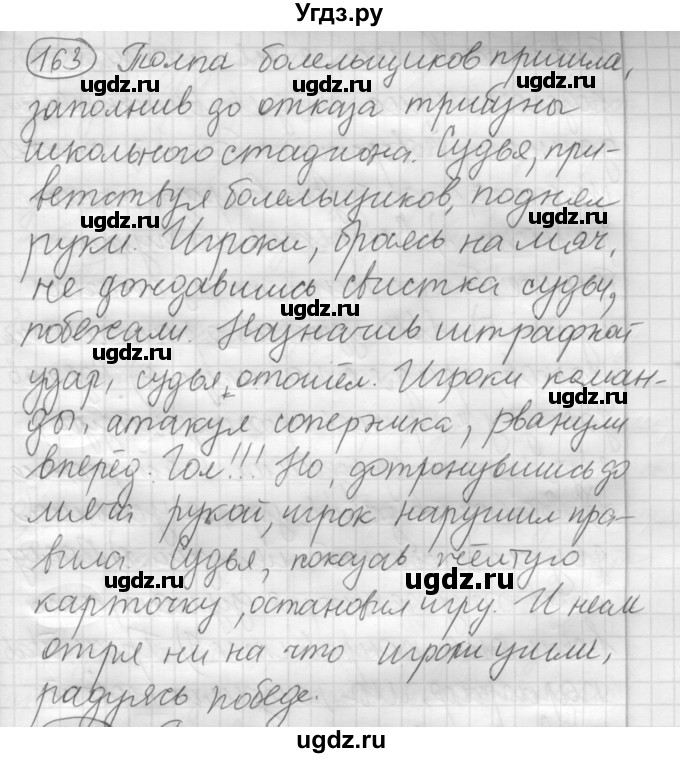 Угдз.ру
163 Толпа болельщиков пришла,
ugdz.ru ugdz.ru
заполнив до отказа трибуны
школьного стадиона. Судья, при-
ugdz.ru
ветствуя болельщиков, поднял
ugdz.ru ugdz.ru
руки. Игроки, бросясь на мяч,
не дождавшись свистка судьи,
ugdz.ru
побежали. Назначив штрафной
ugdz.ru
удар, судья, отошёл. Игроки коман-
ugdz.ru
ды, атакуя соперника, рванули
вперёд. Гол!!! Но, дотронувшись до
мяча рукой, игрок нарушил пра-
вила. Судья, показав жёлтую
ugdz.ru ugdz.ru
карточку, остановил игру. И несм
отря ни на что игроки ушли,
ugdz.ru
радуясь победе.
ugdz.ru